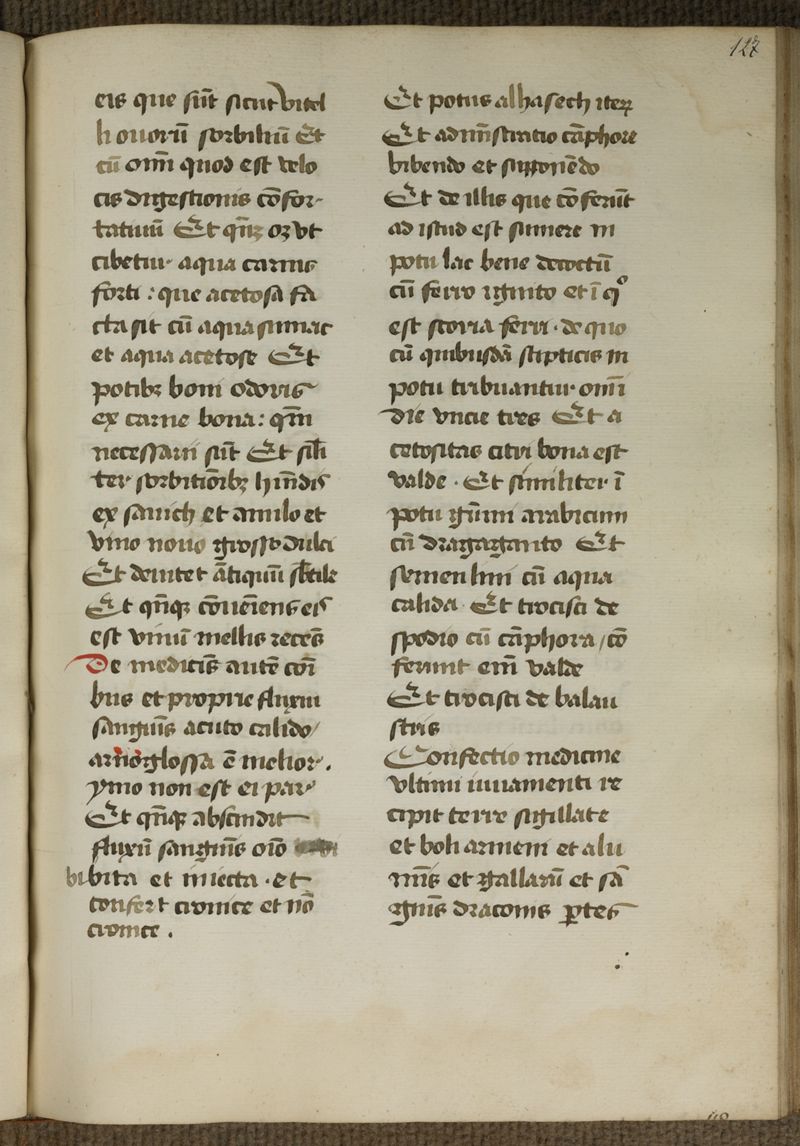 127
cis que sūt sicut vitel
li ouorū sorbiliū Et
cū om̄i quod est velo
cis digestionis cōfor-
tatiuū Et qn̄qꝫ oꝫ vt
cibetur aqua carnis
forti : que acetosa fā
cta sit cū aqua sumac
et aqua acetose Et
potibꝫ boni odoris
ex carne bona : qm̄
necessarii sūt Et sil̄i
ter sorbitiōibꝫ hūidis
ex sauich et amilo et
vino nouo grosso dulci
Et deuitet ātiquū sb̄tile
Et qn̄qꝫ cōueniens eis
est vinū mellis recēs
De medicīs autē cōi
bus et proprie fluxui
sanguīs acuto calido
arnōglossa ē melior .
ymo non est ei par
Et qn̄qꝫ abscindit
fluxū sanguīs oīo
bibita et iniecta . et
confert cronice et nō
cronice .
Et potus alhasech iteꝝ
Et admīstratio cāphore
bibendo et supponēdo
Et de illis que cōferūt
ad istud est sumere in
potu lac bene decoctū
cū ferro ignito et ī qͦ
est scoria ferri . de quo
cū quibusdā stipticis in
potu tribuantur om̄i
die vncie tres Et a
cetositas citri bona est
valde . Et similiter ī
potu gūmi arabicum
cū dragaganto Et
semen lini cū aqua
calida . Et trocisci de
spodio cū cāphora / cō
ferunt em̄ valde
Et trocisci de balau
stiis
Confectio medicine
vltimi iuuamenti re
cipit terre sigillate
et boli armeni et alu
mīs et gallarū et sā
guīs draconis ꝑtes